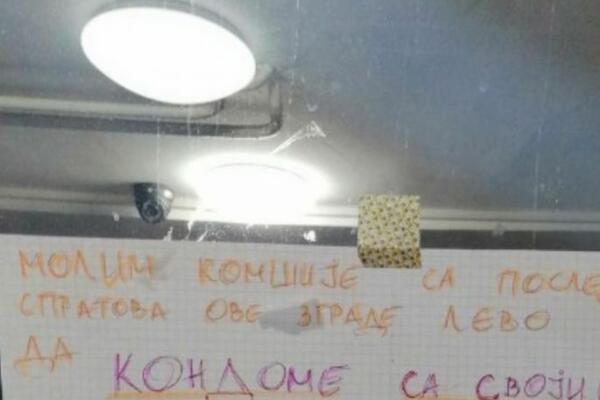 МОЛИМ КОМШИЈЕ СА ПОСЛЕ
СПРАТОВА ОВЕ ЗГРАДЕ ЛЕВО
ДА КОНДОМЕ СА СВОЈИ